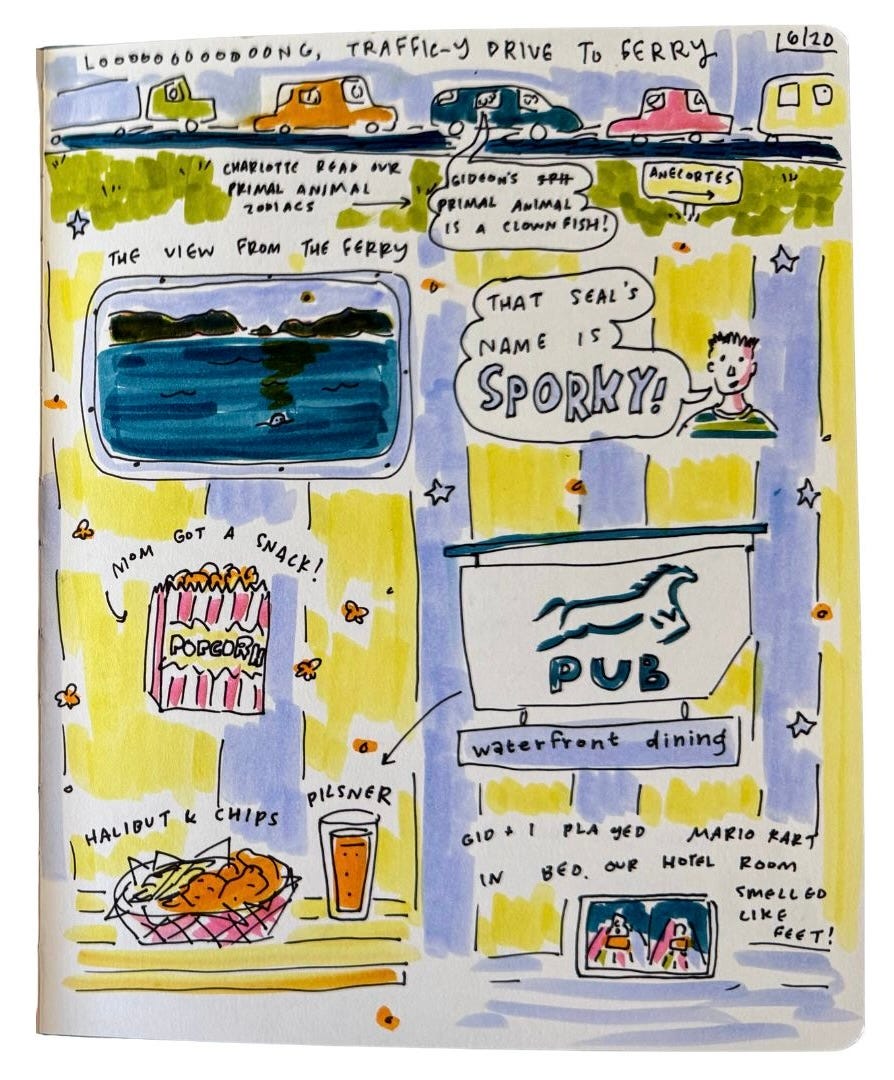 LOOOOOOOOOOOONG, TRAFFIC-Y DRIVE TO FERRY
6/20
CHARLOTTE READ OUR
PRIMAL ANIMAL
ZODIACS
GIDEON'S
PRIMAL ANIMAL
IS A CLOWN FISH!
ANECORTES
THE VIEW FROM THE FERRY
THAT SEAL'S
NAME IS
SPORKY!
MOM GOT A SNACK!
POPCORN
PUB
waterfront dining
HALIBUT & CHIPS
PILSNER
GID + I PLAYED MARIO KART
IN BED. OUR HOTEL ROOM
SMELLED
LIKE
FEET!